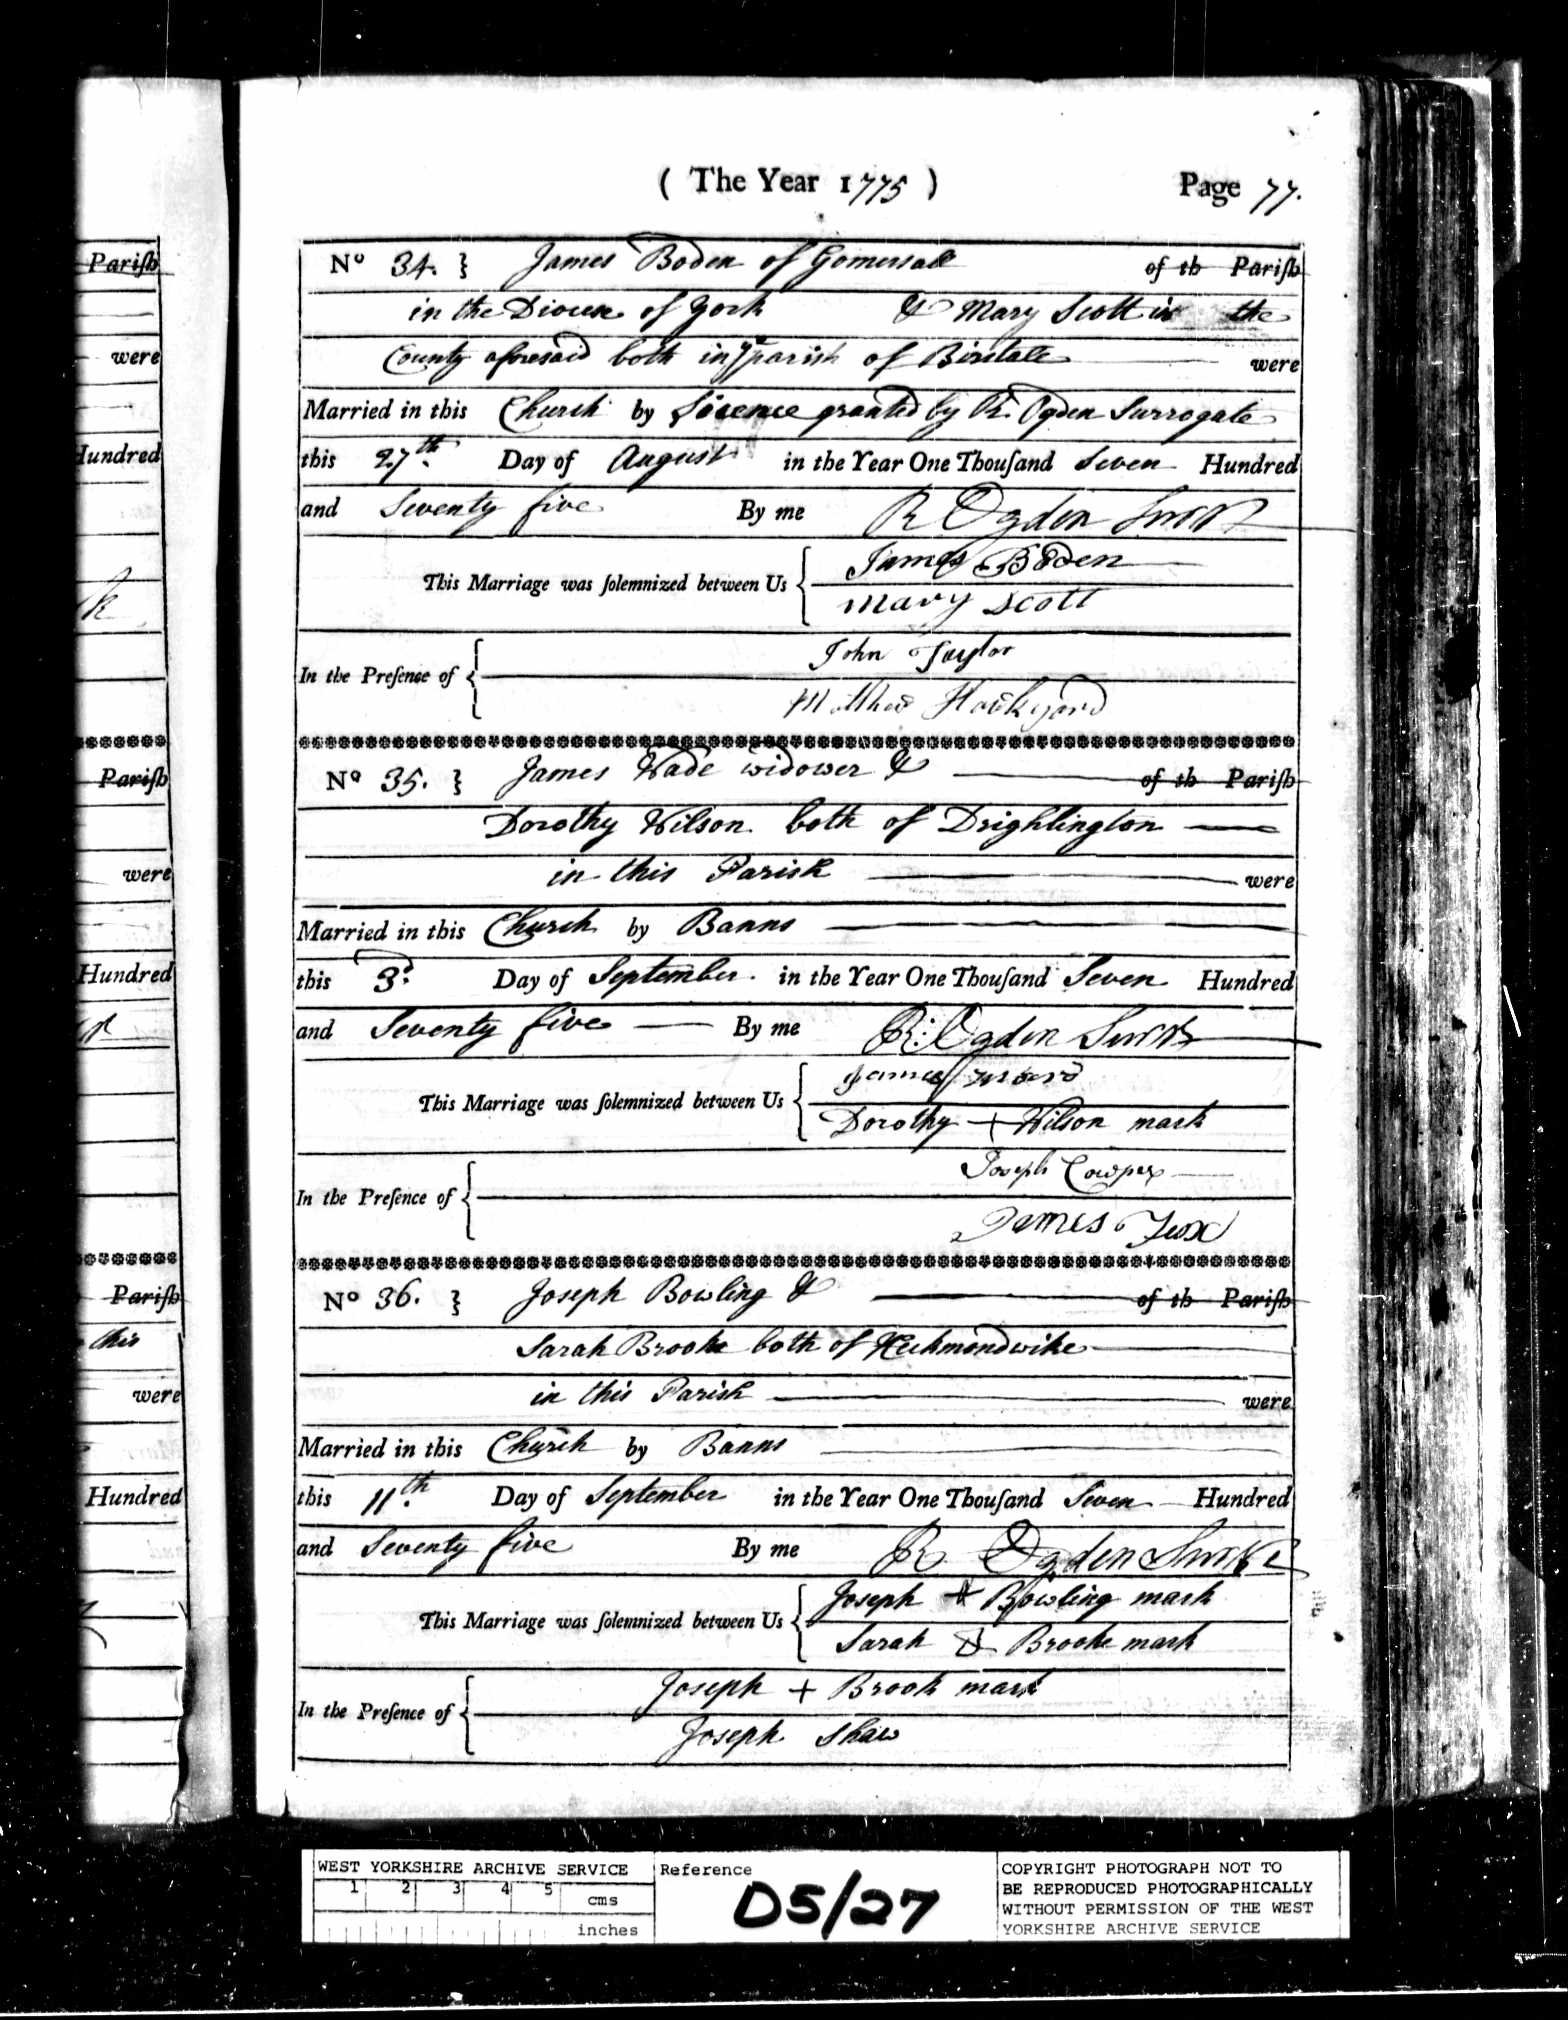 Parish
were
Hundred
Parish
were
Hundred
Parish
this
were
Hundred
( The Year 1775 ) Page 77.
No 34. } James Boden of Gomersall of th Parish
in the Diocese of York & Mary Scott in the
County aforesaid both in ye parish of Birstall were
Married in this Church by Lisence granted by R. Ogden Surrogate
this 27th. Day of August in the Year One Thousand Seven Hundred
and Seventy five By me R Ogden Surr
This Marriage was solemnized between Us { James Boden
Mary Scott
In the Presence of { John Taylor
Matthew Hackyard
No 35. } James Wade widower & of th Parish
Dorothy Wilson both of Drighlington
in this Parish were
Married in this Church by Banns
this 3d. Day of September in the Year One Thousand Seven Hundred
and Seventy five By me R: Ogden
This Marriage was solemnized between Us { James
Dorothy + Wilson mark
In the Presence of { Joseph Cowper
James Fox
No 36. } Joseph Bowling & of th Parish
Sarah Brooke both of Heckmondwike
in this Parish were
Married in this Church by Banns
this 11th. Day of September in the Year One Thousand Seven Hundred
and Seventy five By me R Ogden
This Marriage was solemnized between Us { Joseph + Bowling mark
Sarah Brooke mark
In the Presence of { Joseph + Brook mark
Joseph Shaw
WEST YORKSHIRE ARCHIVE SERVICE
1 2 3 4 5 cms
inches
Reference
D5/27
COPYRIGHT PHOTOGRAPH NOT TO
BE REPRODUCED PHOTOGRAPHICALLY
WITHOUT PERMISSION OF THE WEST
YORKSHIRE ARCHIVE SERVICE